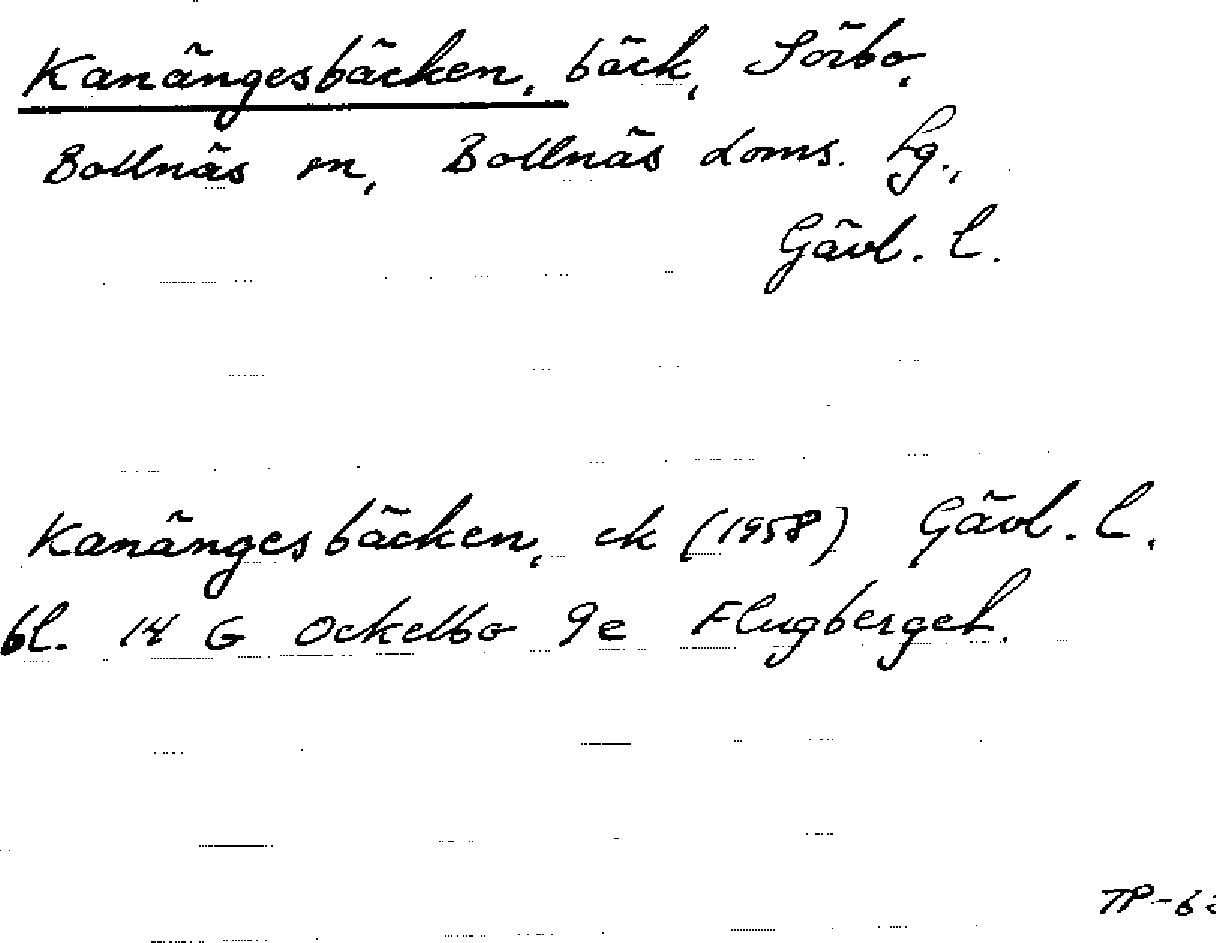 Kanängesbäcken, bäck, Sörbo,
Bollnäs sn, Bollnäs doms. hg.,
Gävl. l.
Kanängesbäcken, ek (1958) Gävl. l.
bl. 14 G Ockelbo 9e Flugberget.
TP-63